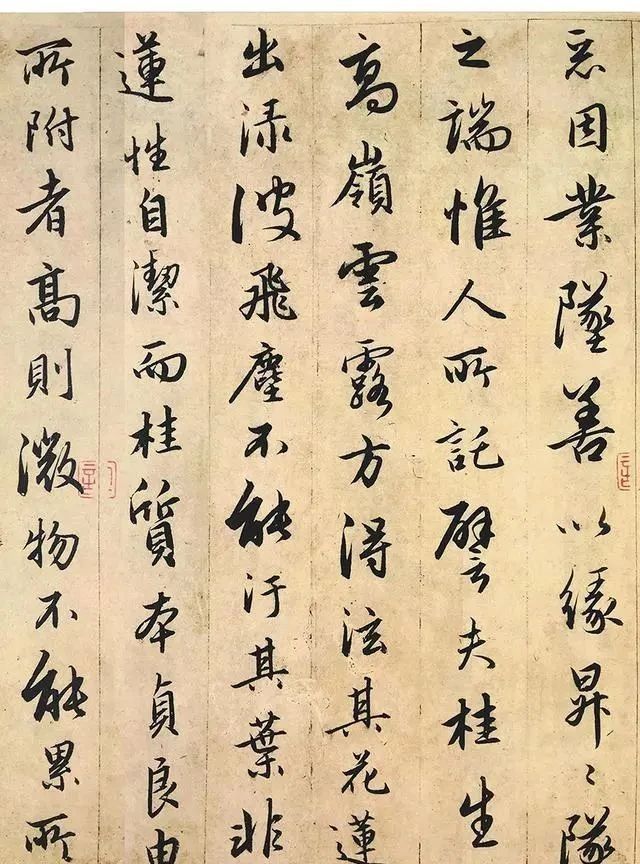 惡因業墜善以緣昇〻墜
之端惟人所託譬夫桂生
高嶺雲露方得泫其花蓮
出渌波飛塵不能汙其葉非
蓮性自潔而桂質本貞良由
所附者高則微物不能累所